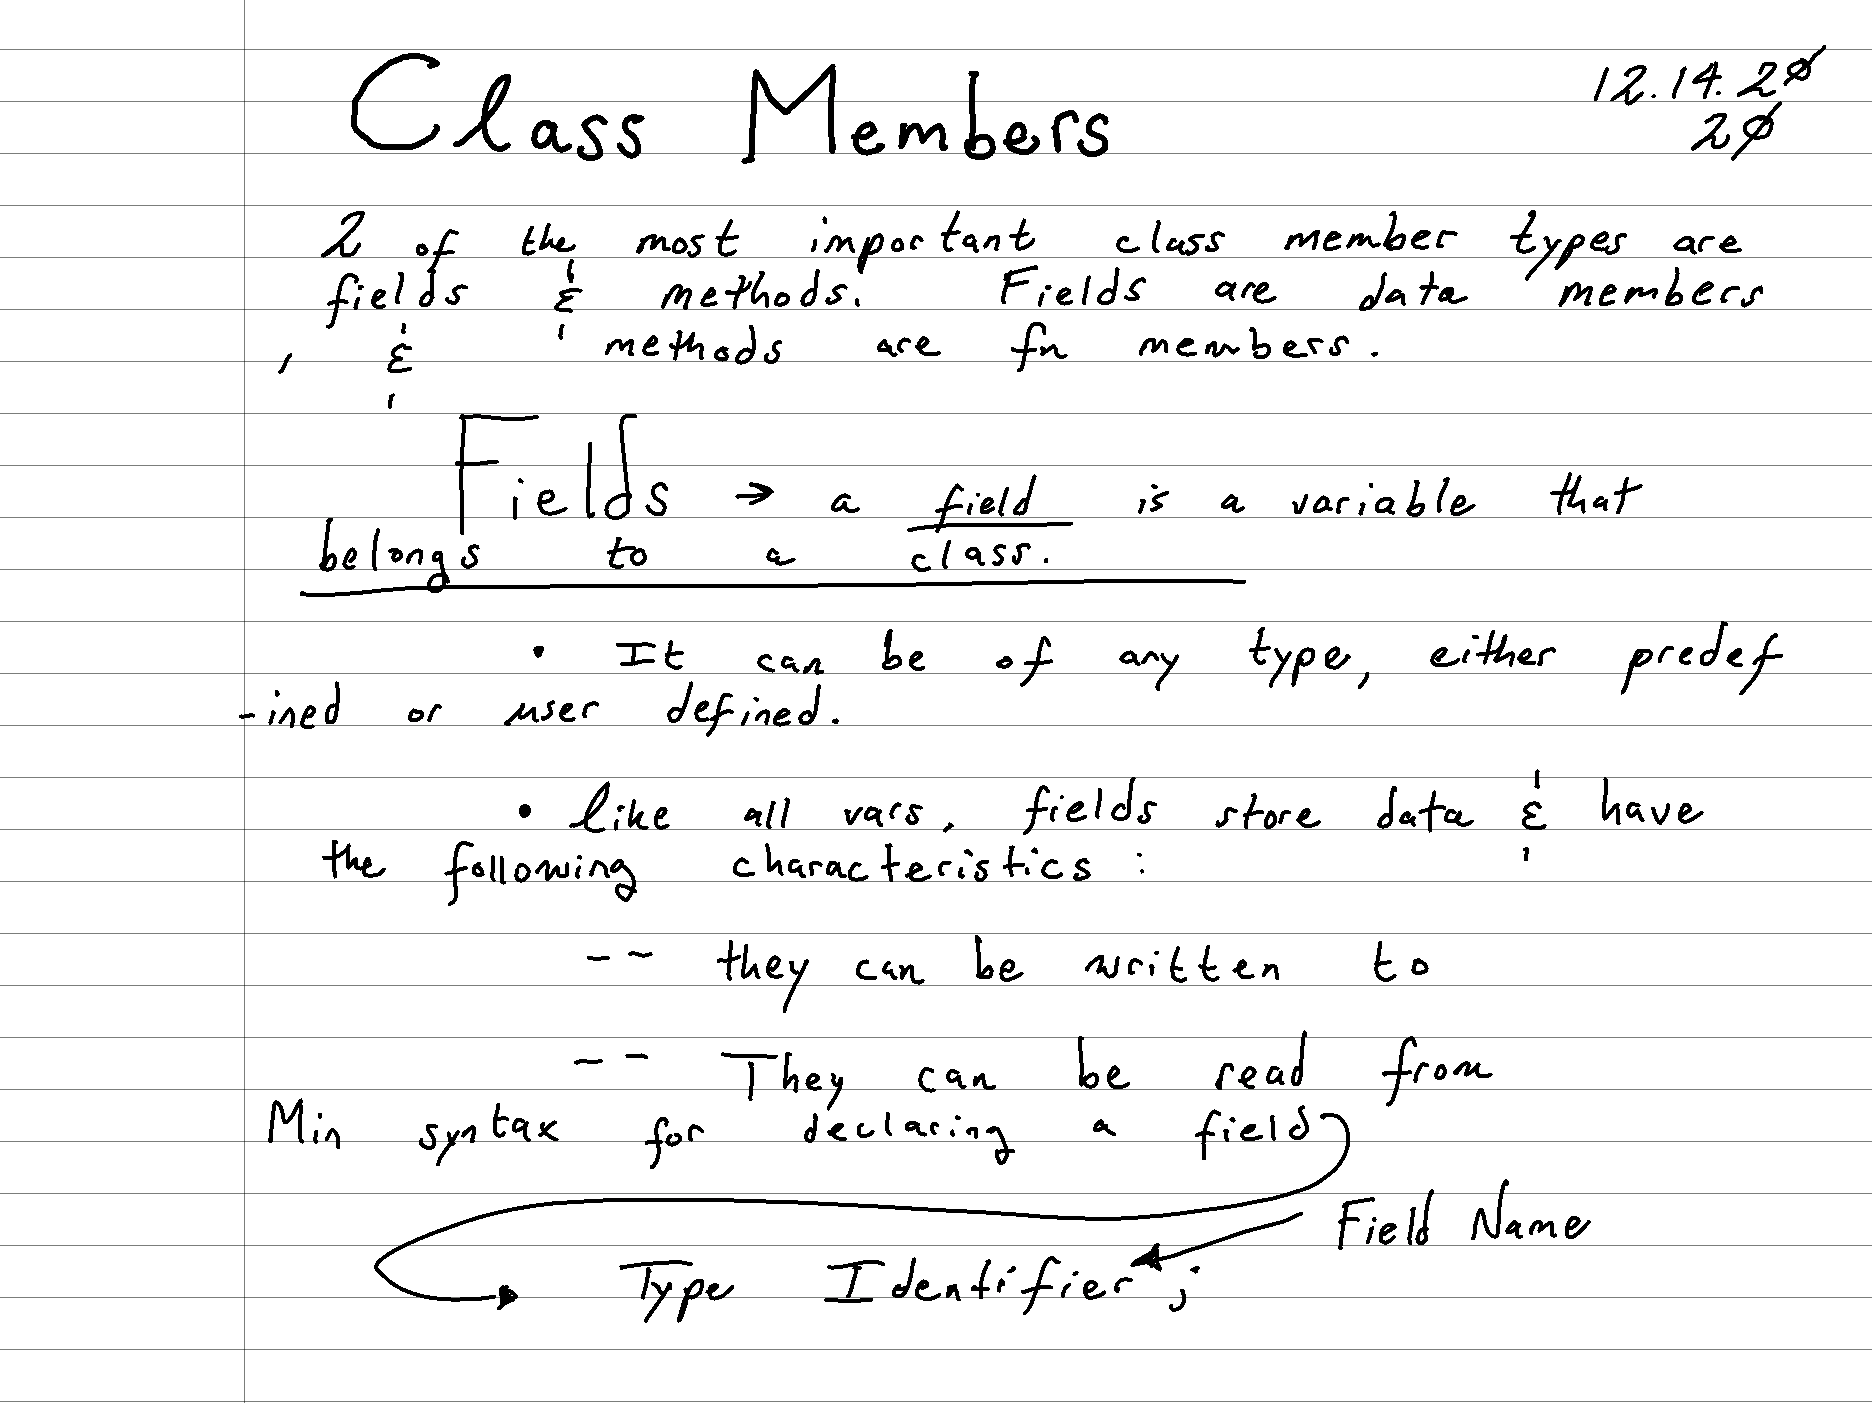 Class Members
12.14.20
20
2 of the most important class member types are
fields & methods. Fields are data members
, & methods are fn members.
Fields → a field is a variable that
belongs to a class.
• It can be of any type, either predef
-ined or user defined.
• like all vars, fields store data & have
the following characteristics :
-- they can be written to
-- They can be read from
Min syntax for declaring a field
Field Name
Type Identifier ;